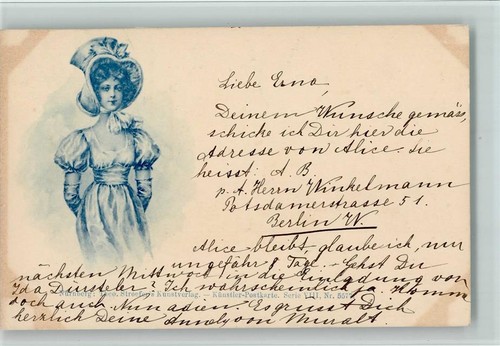 Liebe Erna,
Deinem Wunsche gemäss,
schicke ich Dir hier die
Adresse von Alice. Sie
heisst: A. B.
p. A. Herrn Winkelmann
Potsdamerstrasse 51.
Berlin W.
Alice bleibt, glaube ich, nur
ungefähr 8 Tage. – Gehst Du
nächsten Mittwoch in die Einladung von
Ida Dürsteler? Ich wahrscheinlich ja. Komm
doch auch. Nun adieu. Es grüsst Dich
herzlich Deine von Muralt.
Nürnberg: Theo. Stroefer's Kunstverlag. – Künstler-Postkarte. Serie VIII, Nr.